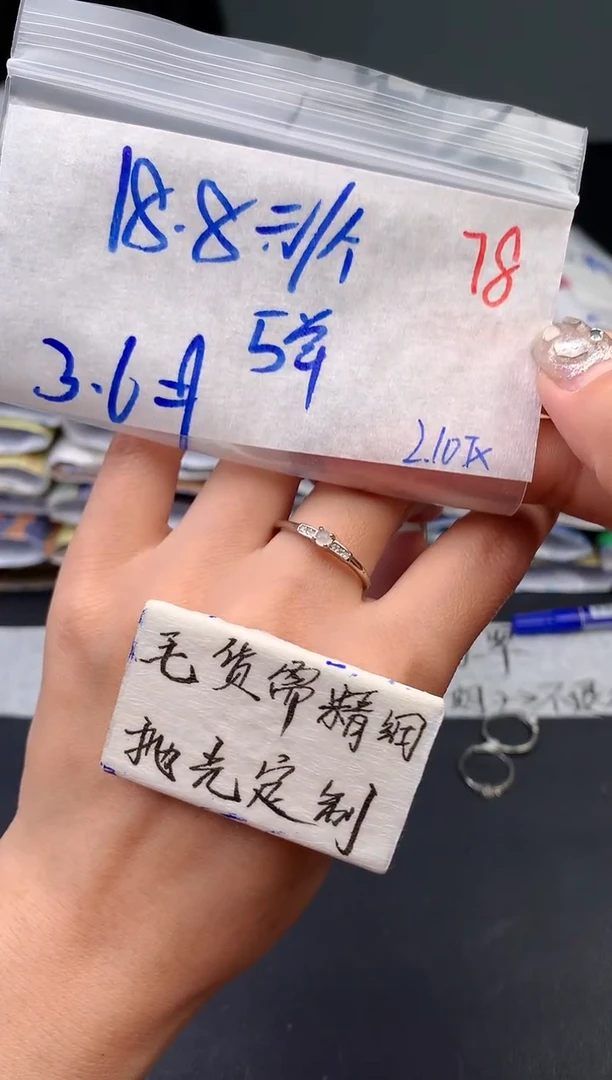 18.8元/个
78
5单
3.6号
2.10
毛货需精细
抛光定制